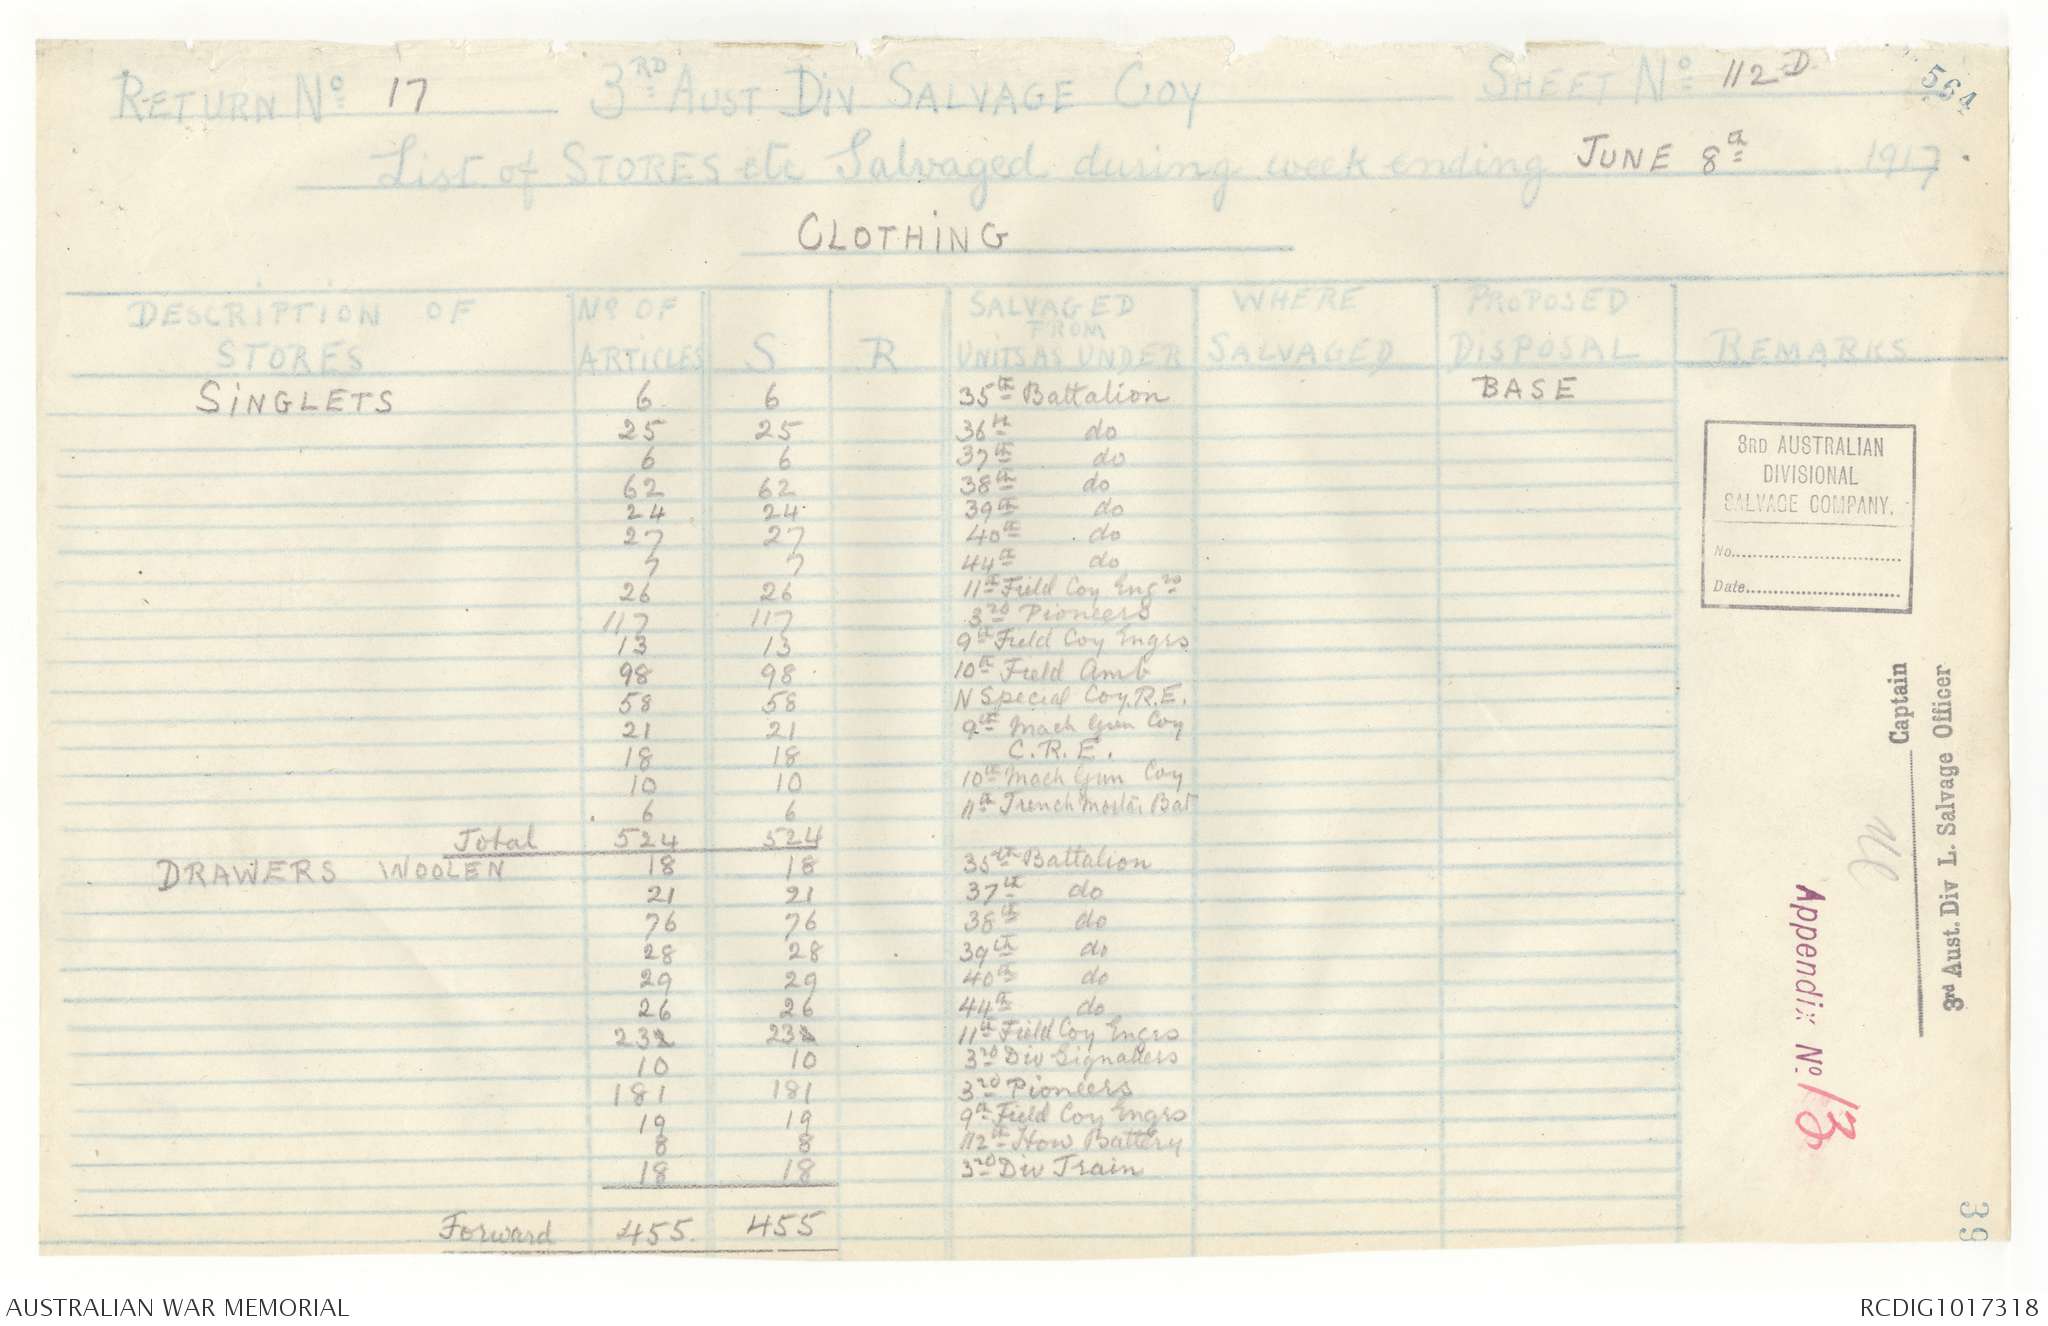 RETURN No 17 3RD AUST DIV SALVAGE COY SHEET No 112 D 564
List of STORES etc Salvaged during week ending JUNE 8th 1917.
CLOTHING
DESCRIPTION OF STORES No OF ARTICLES S R SALVAGED FROM UNITS AS UNDER WHERE SALVAGED PROPOSED DISPOSAL REMARKS
SINGLETS 6 6 35th Battalion BASE
25 25 36th do
6 6 37th do
62 62 38th do
24 24 39th do
27 27 40th do
7 7 44th do
26 26 11th Field Coy Engrs
117 117 3rd Pioneers
13 13 9th Field Coy Engrs
98 98 10th Field Amb
58 58 N Special Coy. R.E.
21 21 9th Mach Gun Coy
18 18 C.R.E.
10 10 10th Mach Gun Coy
6 6 11th Trench Mortar Bat
Total 524 524
DRAWERS WOOLEN 18 18 35th Battalion
21 21 37th do
76 76 38th do
28 28 39th do
29 29 40th do
26 26 44th do
11th Field Coy Engrs
10 10 3rd Div Signallers
181 181 3rd Pioneers
19 19 9th Field Coy Engrs
8 8 112th How Battery
18 18 3rd Div Train
Forward 455 455
3RD AUSTRALIAN
DIVISIONAL
SALVAGE COMPANY.
No.
Date
Captain
3rd Aust. Div L. Salvage Officer
Appendix No. 13
39
AUSTRALIAN WAR MEMORIAL RCDIG1017318